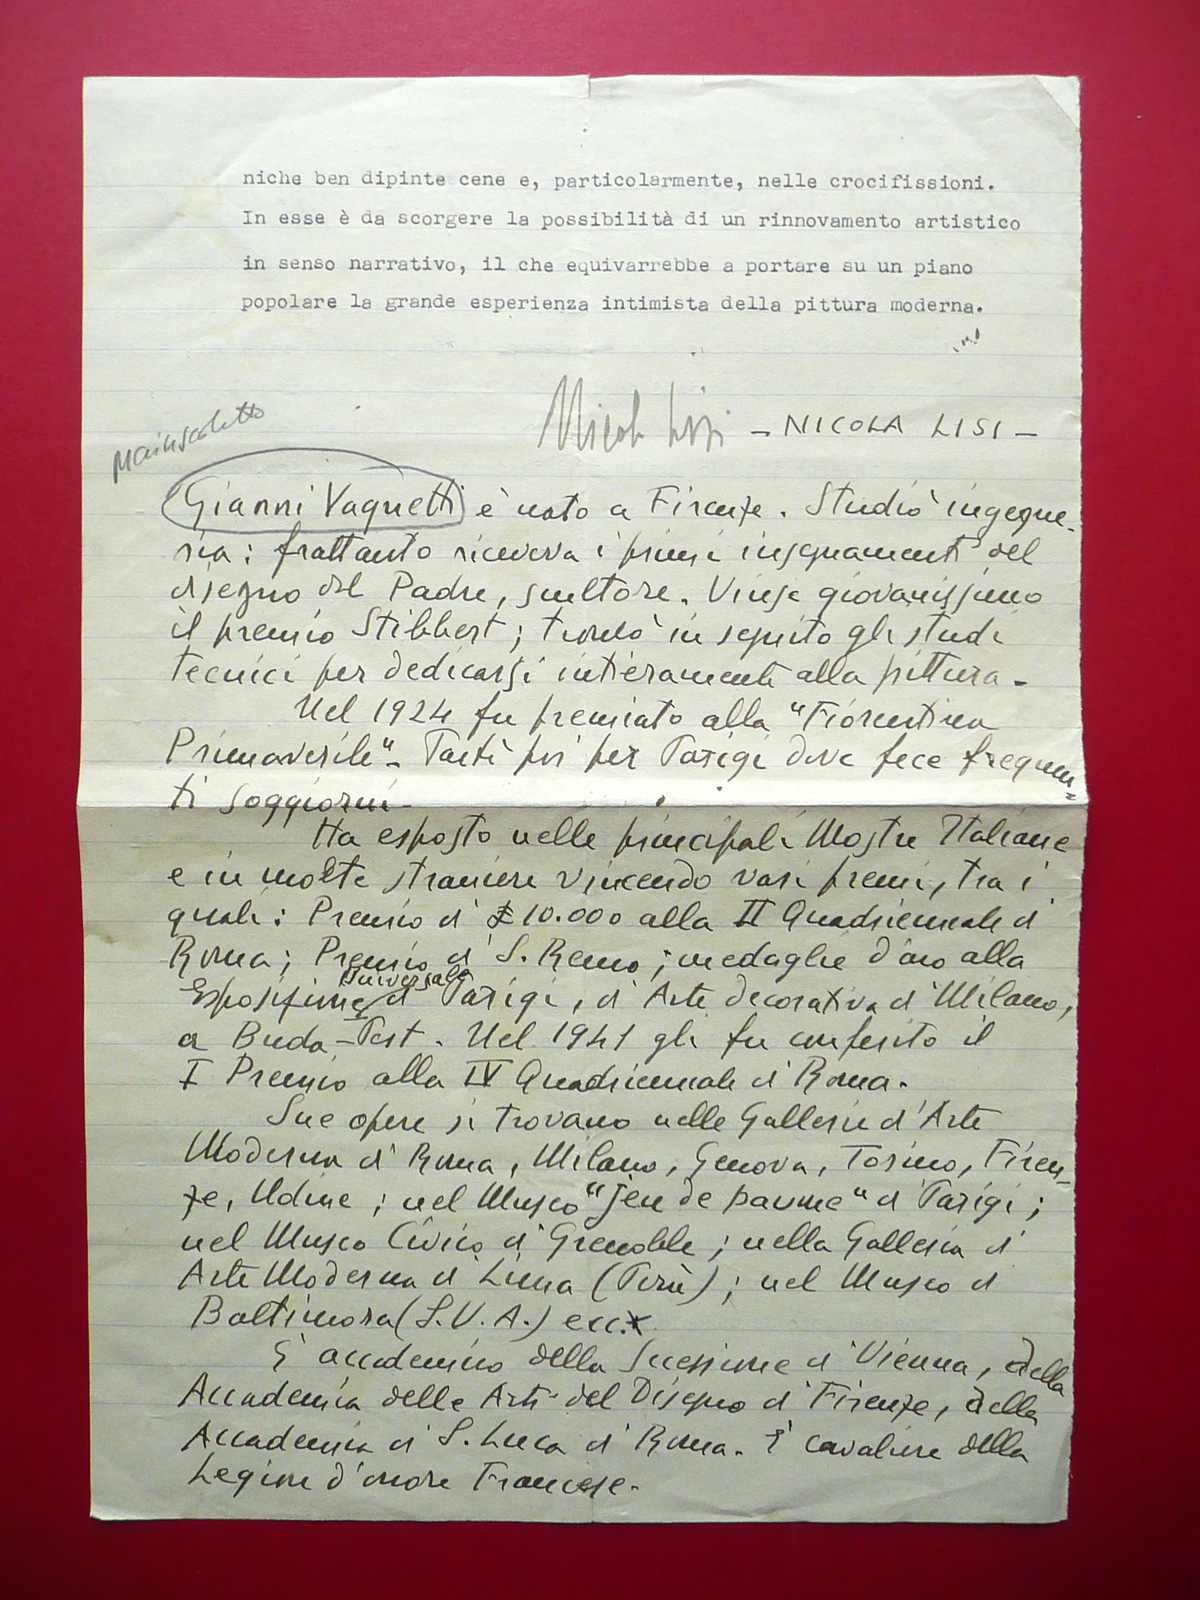 niche ben dipinte cene e, particolarmente, nelle crocifissioni.
In esse è da scorgere la possibilità di un rinnovamento artistico
in senso narrativo, il che equivarrebbe a portare su un piano
popolare la grande esperienza intimista della pittura moderna.
Nicola Lisi - NICOLA LISI -
Maiuscoletto
Gianni Vagnetti è nato a Firenze. Studiò ingegne-
ria: frattanto riceveva i primi insegnamenti del
disegno dal Padre, scultore. Vinse giovanissimo
il premio Stibbert; troncò in seguito gli studi
tecnici per dedicarsi intieramente alla pittura -
Nel 1924 fu premiato alla "Fiorentina
Primaverile" - Partì poi per Parigi dove fece frequen=
ti soggiorni -
Ha esposto nelle principali Mostre Italiane
e in molte straniere vincendo vari premi, tra i
quali: Premio di £ 10.000 alla II Quadriennale di
Roma; Premio di S. Remo; medaglie d'oro alla
Universale
Esposizione di Parigi, di Arte decorativa di Milano,
a Buda-Pest. Nel 1941 gli fu conferito il
I Premio alla IV Quadriennale di Roma.
Sue opere si trovano nelle Gallerie d'Arte
Moderna di Roma, Milano, Genova, Torino, Firen-
ze, Udine; nel Museo "Jeu de paume" di Parigi;
nel Museo Civico di Grenoble; nella Galleria di
Arte Moderna di Lima (Perù); nel Museo di
Baltimora (S.U.A.) ecc.
È accademico della Secessione di Vienna, della
Accademia delle Arti del Disegno di Firenze, della
Accademia di S. Luca di Roma. È cavaliere della
Legion d'onore Francese.